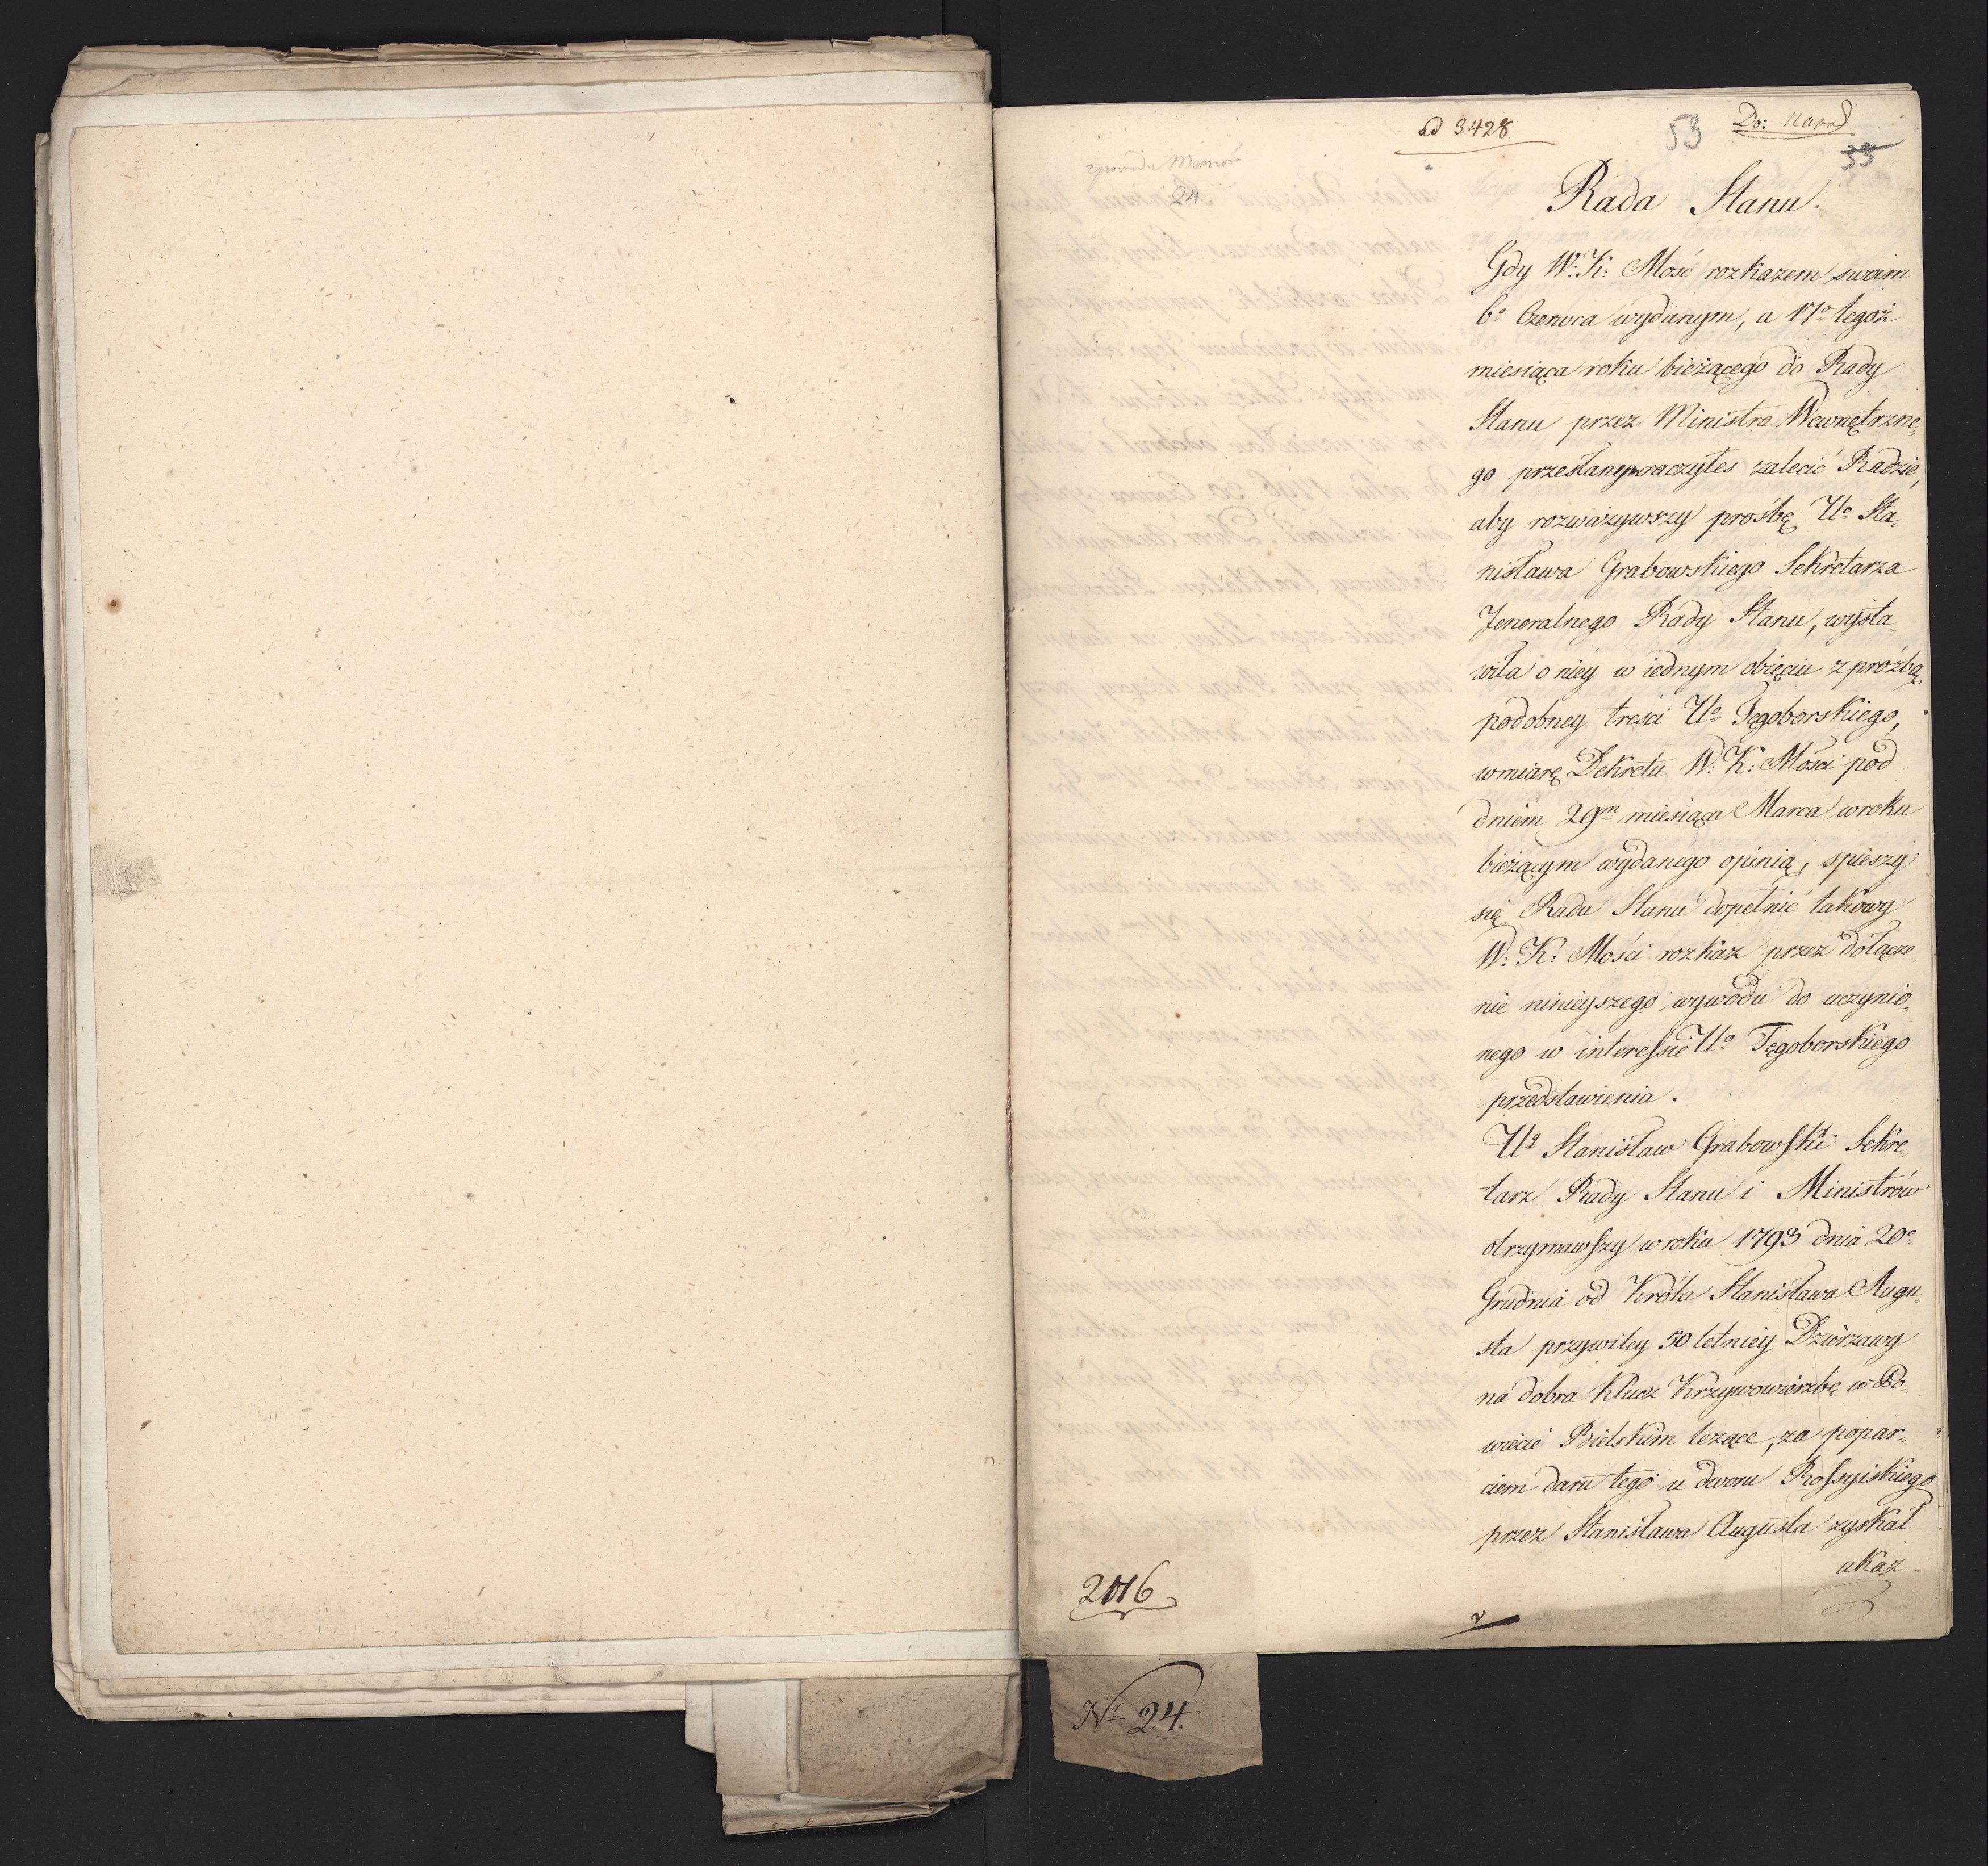 ad 3428
53
Do: Narod
33
24
Rada Stanu.
Gdy W: K: Mość rozkazem swoim
6o Czerwca wydanym, a 17o tegoż
miesiąca roku bieżącego do Rady
Stanu przez Ministra Wewnętrzne„
go przesłanym raczyłes zalecić Radzie,
aby rozważywszy prośbę Uo Sta„
nisława Grabowskiego Sekretarza
Jeneralnego Rady Stanu, wysta„
wiła o niéy w iednym obięciu z próźbą
podobney treści Uo Tęgoborskiego,
w miarę Dekretu W: K: Mości pod
dniem 29m miesiąca Marca w roku
bieżącym wydanego opinią, spieszy
się Rada Stanu dopełnić takowy
W: K: Mości rozkaz przez dołącze„
nie ninieyszego wywodu do uczynio„
nego w interessie Uo Tęgoborskiego
przedstawienia.
Uy Stanisław Grabowski Sekre„
tarz Rady Stanu i Ministrów
otrzymawszy w roku 1793 dnia 20o
Grudnia od Króla Stanisława Augu„
sta przywiley 50 letniéy Dzierzawy
na dobra Klucz Krzywowierzbę w Po„
wiecie Bielskim leżące, za popar„
ciem daru tego u dworu Rossyiskiego
przez Stanisława Augusta zyskał
ukaz
2016
Nr 24.